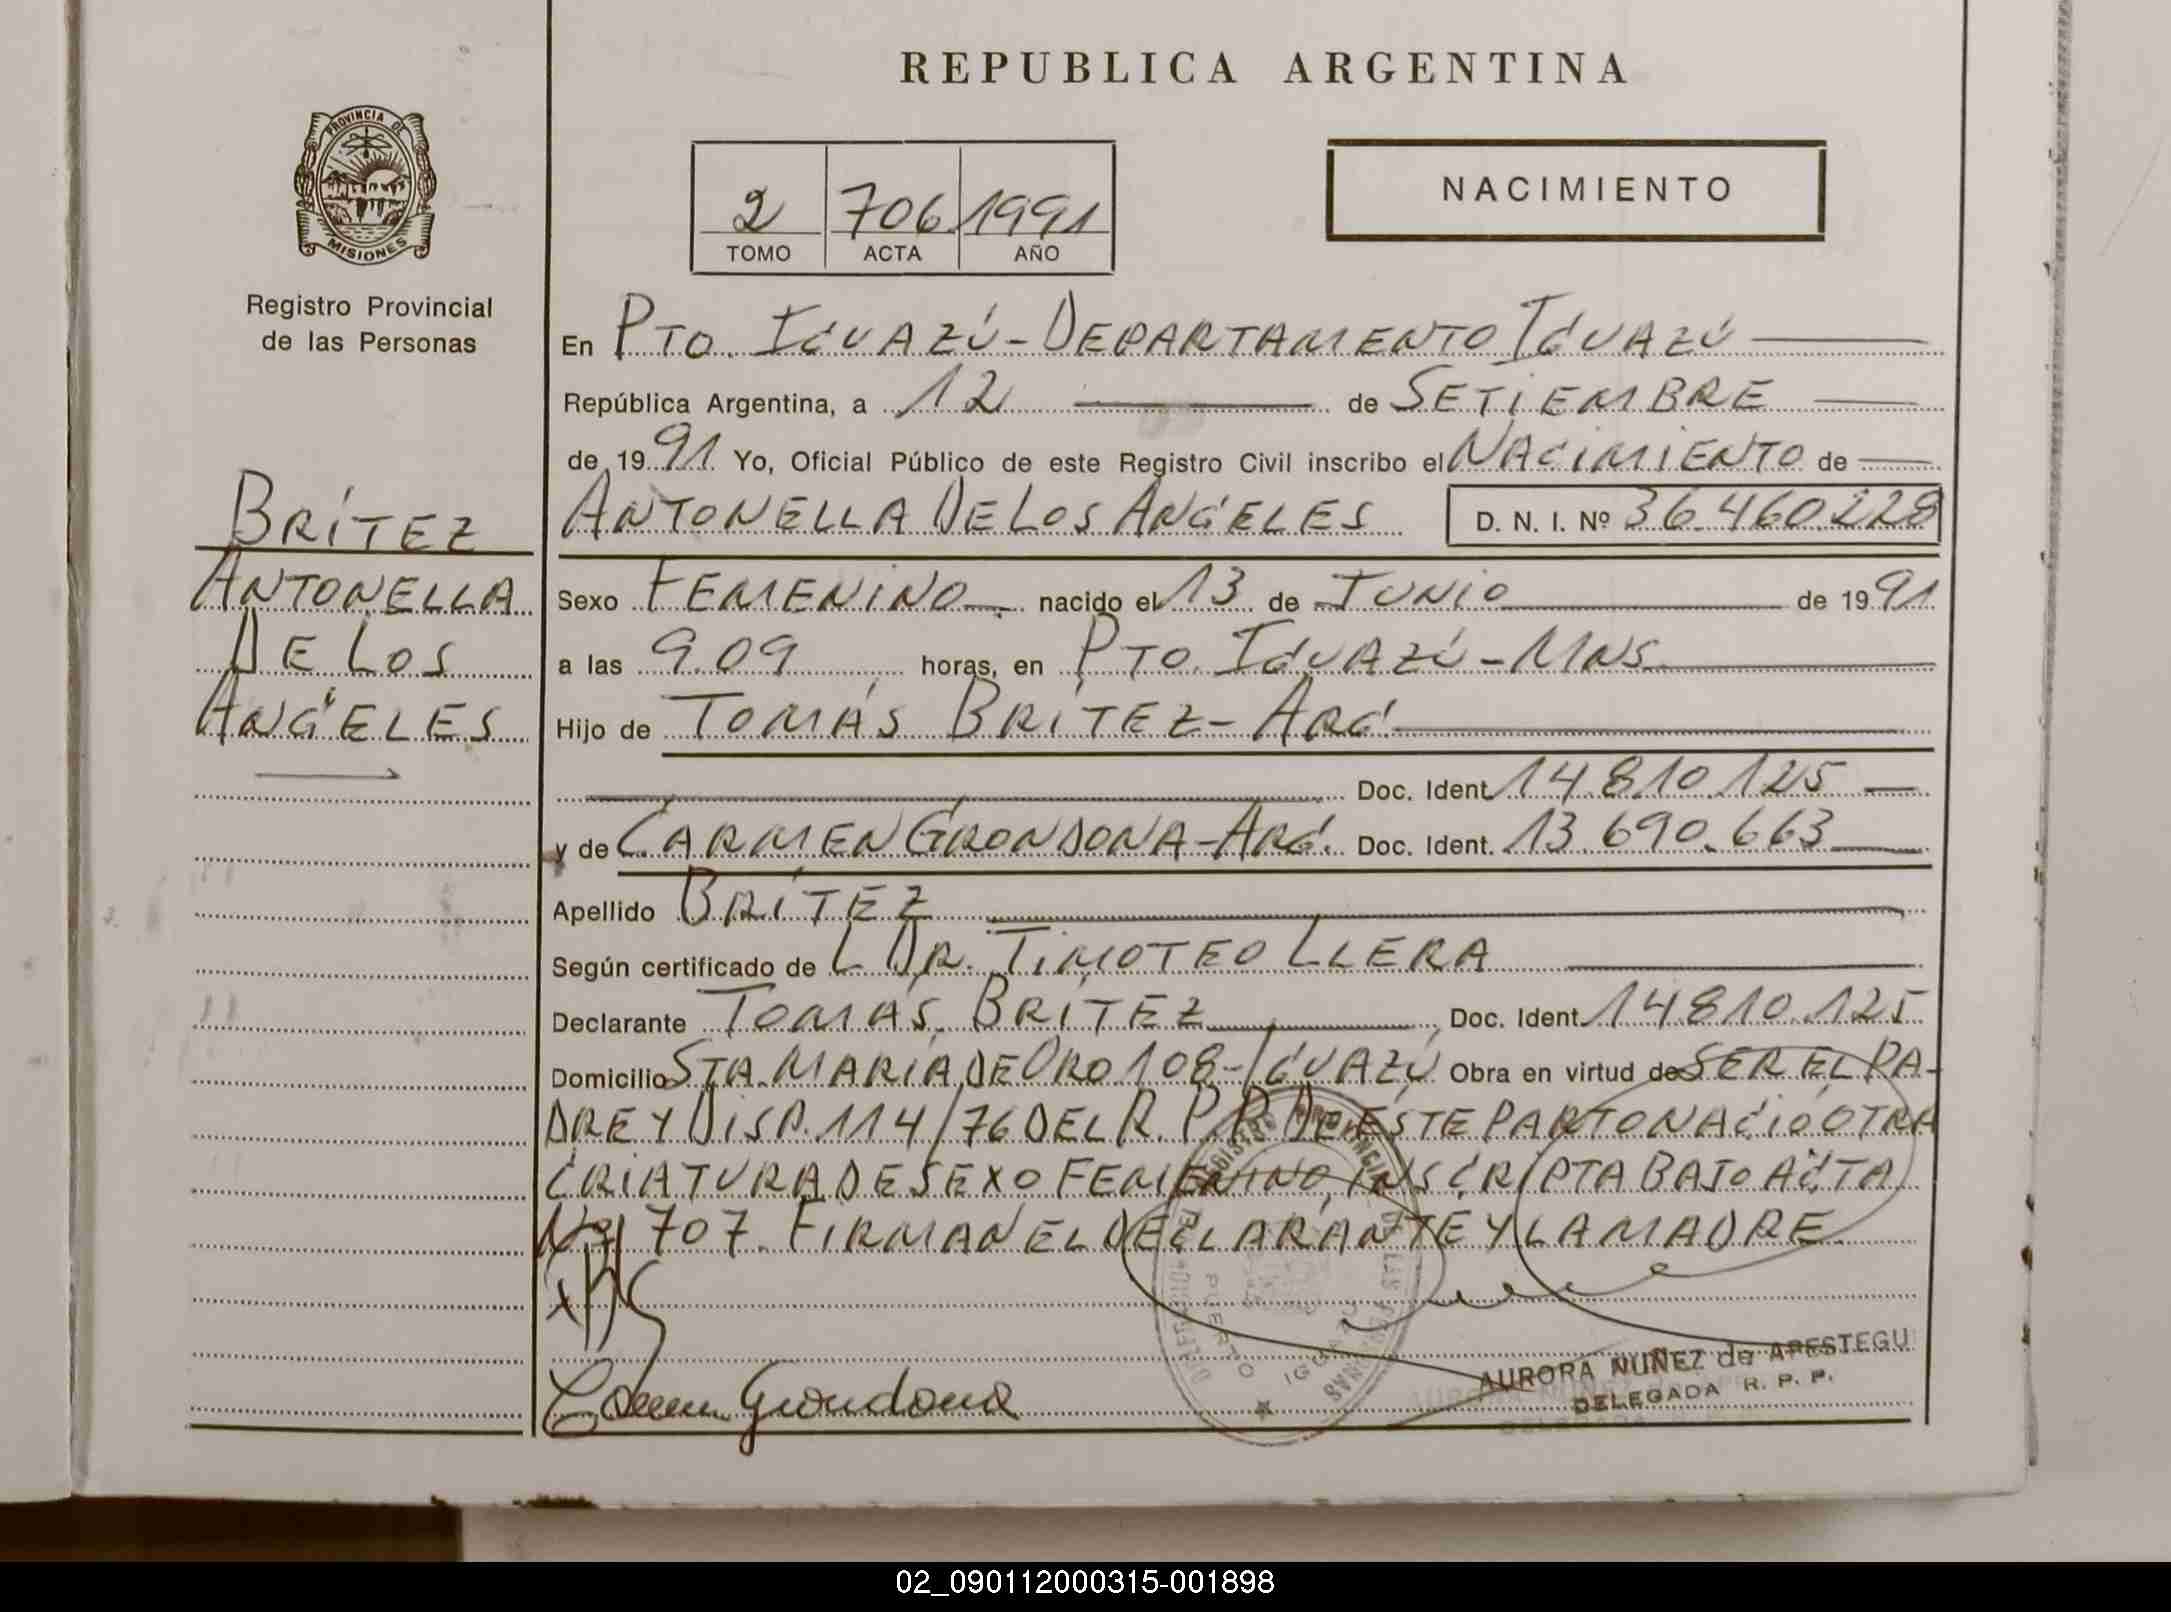 REPUBLICA ARGENTINA
PROVINCIA DE
MISIONES
Registro Provincial
de las Personas
2 706 1991
TOMO ACTA AÑO
NACIMIENTO
En PTO. IGUAZÚ - DEPARTAMENTO IGUAZÚ
República Argentina, a 12 de SETIEMBRE
de 1991 Yo, Oficial Público de este Registro Civil inscribo el NACIMIENTO de
ANTONELLA DE LOS ANGELES D. N. I. Nº 36.460.228
BRÍTEZ
ANTONELLA
DE LOS
ANGELES
Sexo FEMENINO nacido el 13 de JUNIO de 1991
a las 9.09 horas, en PTO. IGUAZÚ - MNS.
Hijo de TOMÁS BRÍTEZ - ARG.
Doc. Ident. 14.810.125
y de CARMEN GRONDONA - ARG. Doc. Ident. 13.690.663
Apellido BRÍTEZ
Según certificado de L DR. TIMOTEO LLERA
Declarante TOMÁS BRÍTEZ Doc. Ident. 14.810.125
Domicilio STA. MARÍA DE ORO 108 - IGUAZÚ Obra en virtud de SER EL PA-
DRE Y DISP. 114/76 DEL R. P. P. DE ESTE PARTO NACIÓ OTRA
CRIATURA DE SEXO FEMENINO, INSCRIPTA BAJO ACTA
Nº 707. FIRMAN EL DECLARANTE Y LA MADRE.
Carmen Grondona
PUERTO IGUAZU
AURORA NUÑEZ de APESTEGU
DELEGADA R. P. P.
02_090112000315-001898